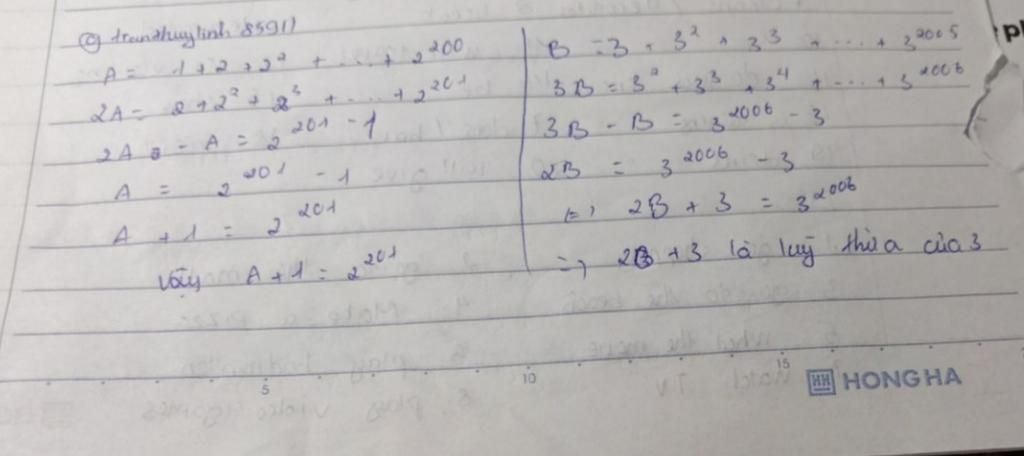 @ tranthuylinh 85911
A = 1 + 2 + 2² + ... + 2²⁰⁰
2A = 2 + 2² + 2³ + ... + 2²⁰¹
2A - A = 2²⁰¹ - 1
A = 2²⁰¹ - 1
A + 1 = 2²⁰¹
Vậy A + 1 = 2²⁰¹
B = 3 + 3² + 3³ + ... + 3²⁰⁰⁵
3B = 3² + 3³ + 3⁴ + ... + 3²⁰⁰⁶
3B - B = 3²⁰⁰⁶ - 3
2B = 3²⁰⁰⁶ - 3
=> 2B + 3 = 3²⁰⁰⁶
=> 2B + 3 là luỹ thừa của 3
5 10 15
HH HONG HA